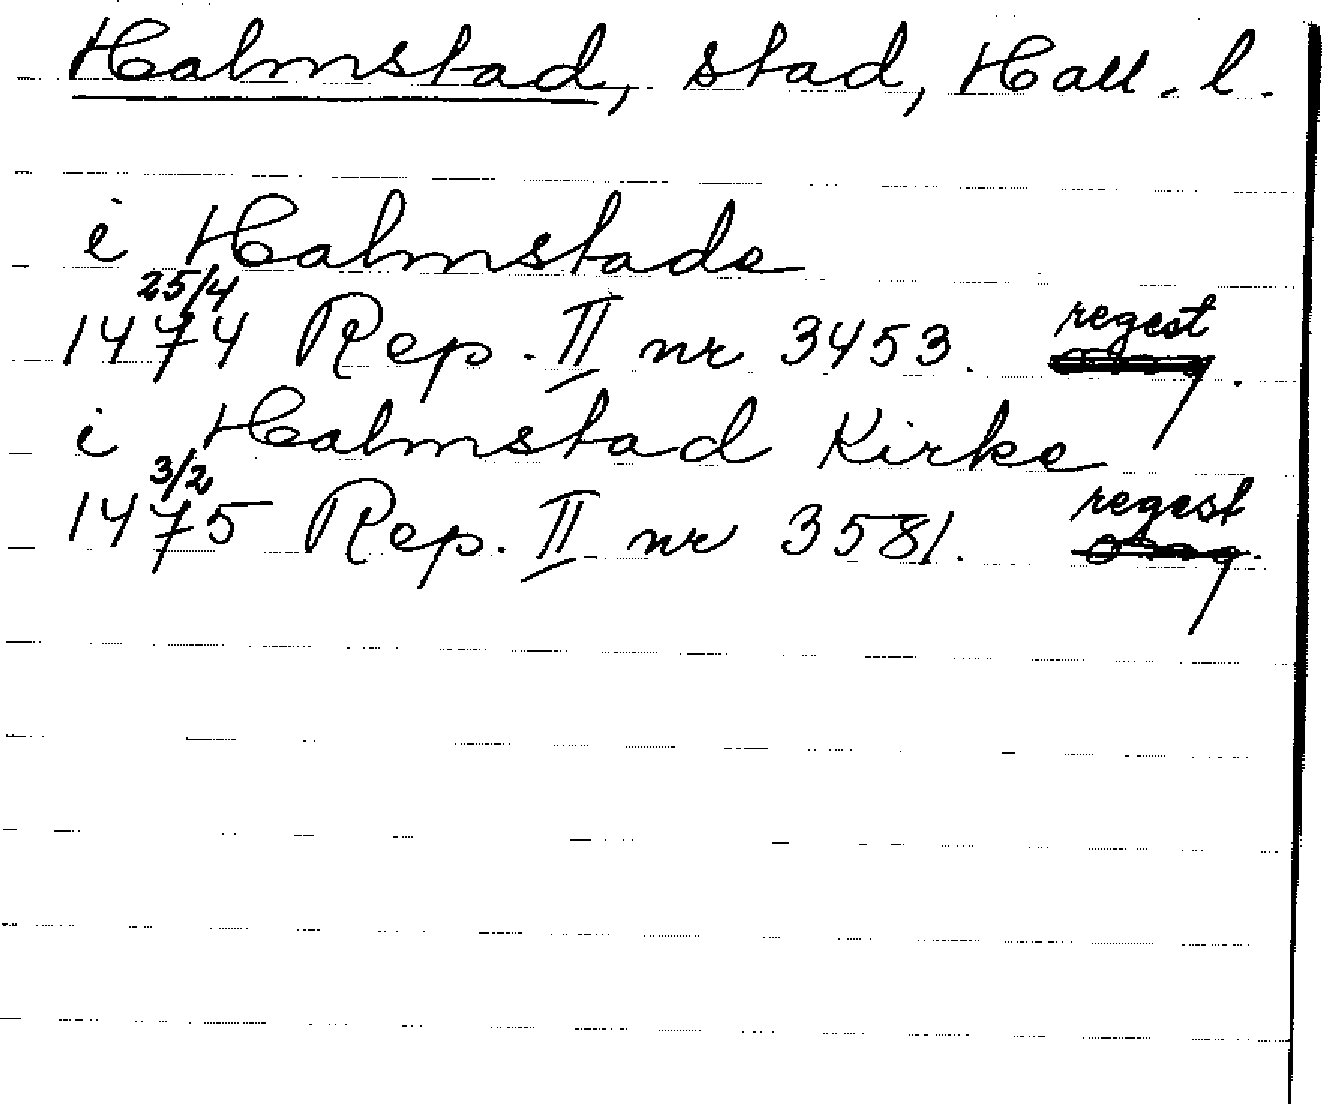 Halmstad, stad, Hall. l.
i Halmstade
25/4
1474 Rep. II nr 3453. regest
i Halmstad Kirke
3/2
1475 Rep. II nr 3581. regest